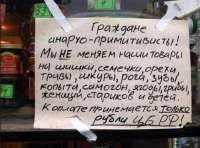 Граждане
анархо-примитивисты!
Мы НЕ меняем наши товары
на шишки, семечки, орехи,
травы, шкуры, рога, зубы,
копыта, самогон, ягоды, грибы,
женщин, стариков и детей.
К оплате принимаются только
рубли ЦБ РФ!